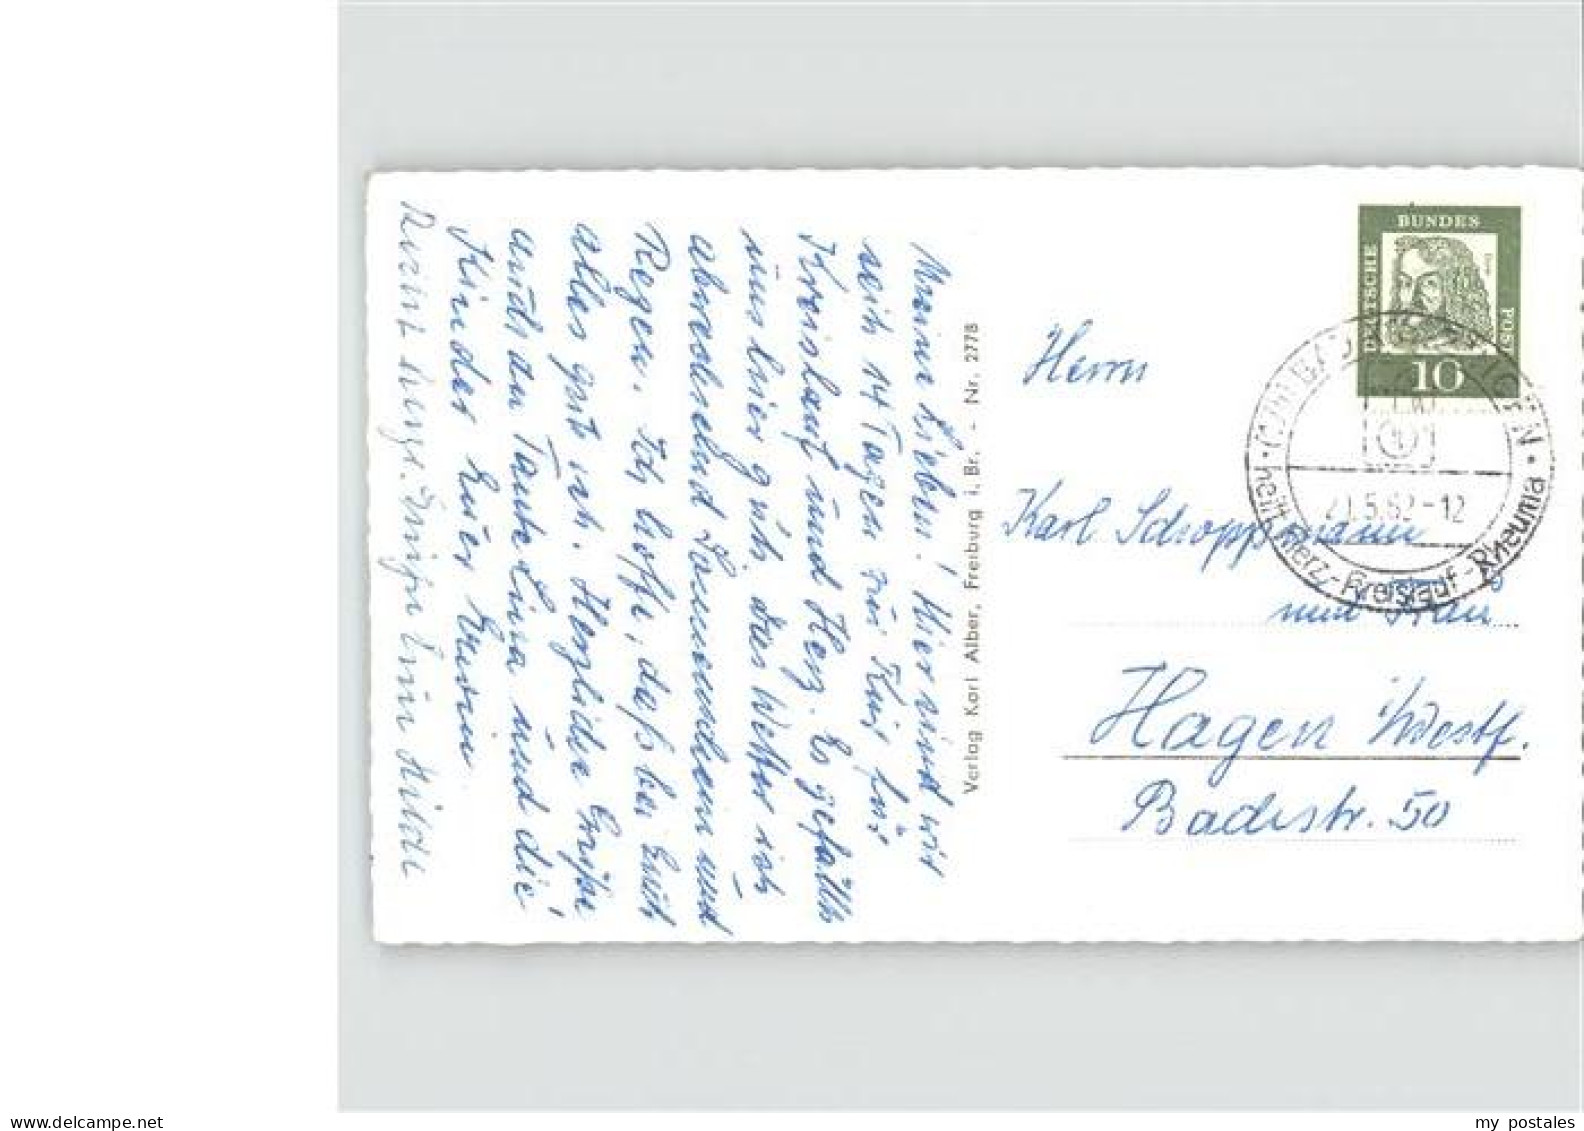 Meine Lieben! Hier sind wir
seit 14 Tagen zur Kur für
Kreislauf und Herz. Es gefällt
uns hier gut, das Wetter ist
abwechselnd Sonnenschein und
Regen. Ich hoffe, daß bei Euch
alles gut ist. Herzliche Grüße
auch an Tante Lina und die
Kinder Euer Erwin.
Recht herzl. Grüße Eure Hilde
Verlag Karl Alber, Freiburg i. Br. - Nr. 2778
DEUTSCHE BUNDES POST
10
21.5.62-12
heilt Herz-Kreislauf-Rheuma
Herrn
Karl Schoppmann
und Frau
Hagen i/Westf.
Badstr. 50
delcampe.net
my_postales